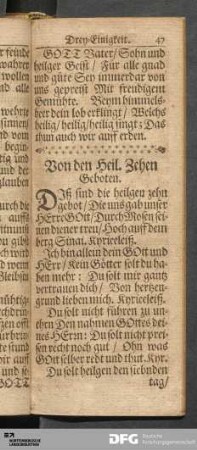 Drey-Einigkeit. 47
GOTT Vater/ Sohn und
heilger Geist/ Für alle gnad
und güte Sey immerdar von
uns gepreist Mit freudigem
Gemühte. Beym himmels-
her dein lob erklingt/ Welchs
heilig/ heilig/ heilig singt; Das
thun auch wir auff erden.
Von den Heil. Zehen
Geboten.
DIß sind die heilgen zehn
gebot/ Die uns gab unser
HErre GOtt/ Durch Mosen sei-
nen diener treu/ Hoch auff dem
berg Sinai. Kyrieeleiß.
Ich bin allein dein GOtt und
HErr/ Kein Götter solt du ha-
ben mehr: Du solt mir gantz
vertrauen dich/ Von hertzen-
grund lieben mich. Kyrieeleiß.
Du solt nicht führen zu un-
ehrn Den nahmen GOttes dei-
nes HErrn: Du solt nicht prei-
sen recht noch gut/ Ohn was
GOtt selber redt und thut. Kyr.
Du solt heilgen den siebnden
tag/
DFG
Deutsche
Forschungsgemeinschaft